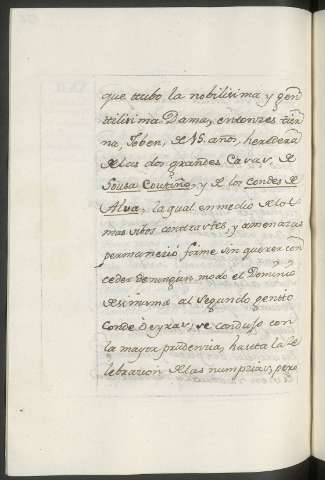 que tubo la nobilisima y gen
tilisima Dama, entonzes tier
na, Joben, de 15. años, heredera
de las dos grandes Casas, de
Sousa Coutiño, y de los Condes de
Alva, la qual en medio de lo
mas sitos contrastes, y amenazas
permanesió firme sin querer con
ceder de ningun modo el Dominio
de si misma al segundo genito
Conde Deyras; se condujo con
la mayor prudenzia, hasta la Ze
lebrazion de las numpzias; pero